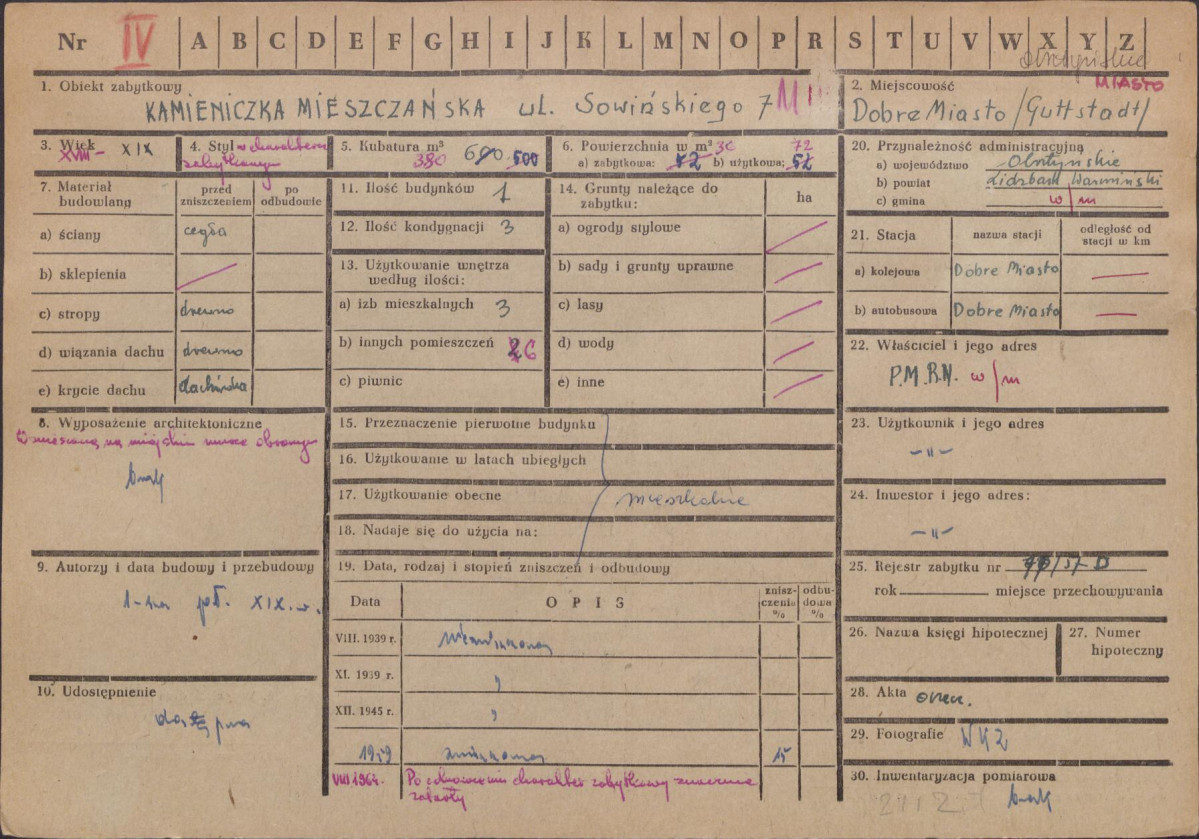 Nr IV A B C D E F G H I J K L M N O P R S T U V W X Y Z
olsztyńskie
1. Obiekt zabytkowy
KAMIENICZKA MIESZCZAŃSKA ul. Sowińskiego 7
2. Miejscowość MIASTO
Dobre Miasto /Guttstadt/
3. Wiek XVIII - XIX
4. Styl w charakterze
zabytkowym
5. Kubatura m³
380 600 500
6. Powierzchnia w m² 36 72
a) zabytkowa: 72 b) użytkowa: 52
20. Przynależność administracyjna
a) województwo Olsztyńskie
b) powiat Lidzbark Warmiński
c) gmina w/m
7. Materiał budowlany
przed zniszczeniem
po odbudowie
a) ściany cegła
b) sklepienia
c) stropy drewno
d) wiązania dachu drewno
e) krycie dachu dachówka
11. Ilość budynków 1
12. Ilość kondygnacji 3
13. Użytkowanie wnętrza
według ilości:
a) izb mieszkalnych 3
b) innych pomieszczeń 2 6
c) piwnic
14. Grunty należące do
zabytku: ha
a) ogrody stylowe
b) sady i grunty uprawne
c) lasy
d) wody
e) inne
21. Stacja nazwa stacji odległość od
stacji w km
a) kolejowa Dobre Miasto —
b) autobusowa Dobre Miasto —
22. Właściciel i jego adres
P.M.R.N. w/m
8. Wyposażenie architektoniczne
Umieszczona na miejskim murze obronnym
brak
15. Przeznaczenie pierwotne budynku
16. Użytkowanie w latach ubiegłych
17. Użytkowanie obecne
mieszkalne
18. Nadaje się do użycia na:
23. Użytkownik i jego adres
- " -
24. Inwestor i jego adres:
- " -
9. Autorzy i data budowy i przebudowy
1-sza poł. XIX. w.
19. Data, rodzaj i stopień zniszczeń i odbudowy
Data OPIS znisz-
czenia
% odbu-
dowa
%
VIII. 1939 r. niezniszczony
XI. 1939 r. "
XII. 1945 r. "
1959 zniszczony 15
VIII 1964. Po odnowieniu charakter zabytkowy znacznie
zatarty
25. Rejestr zabytku nr /57 D
rok miejsce przechowywania
26. Nazwa księgi hipotecznej
27. Numer
hipoteczny
10. Udostępnienie
dostępna
28. Akta
29. Fotografie WKZ
30. Inwentaryzacja pomiarowa
brak